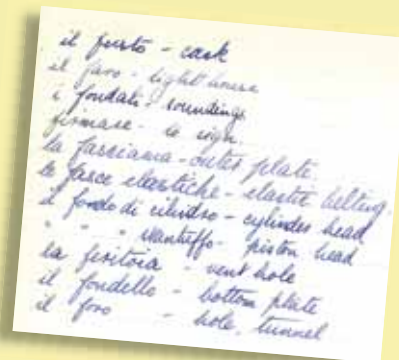 il fusto - cask
il faro - light house
i fondali - soundings
firmare - to sign.
la fasciama - outer plate.
le fasce elastiche - elastic belting.
il fondo di cilindro - cylinder head
" " " stantuffo - piston head
la feritoia - vent hole
il fondello - bottom plate
il foro - hole, tunnel